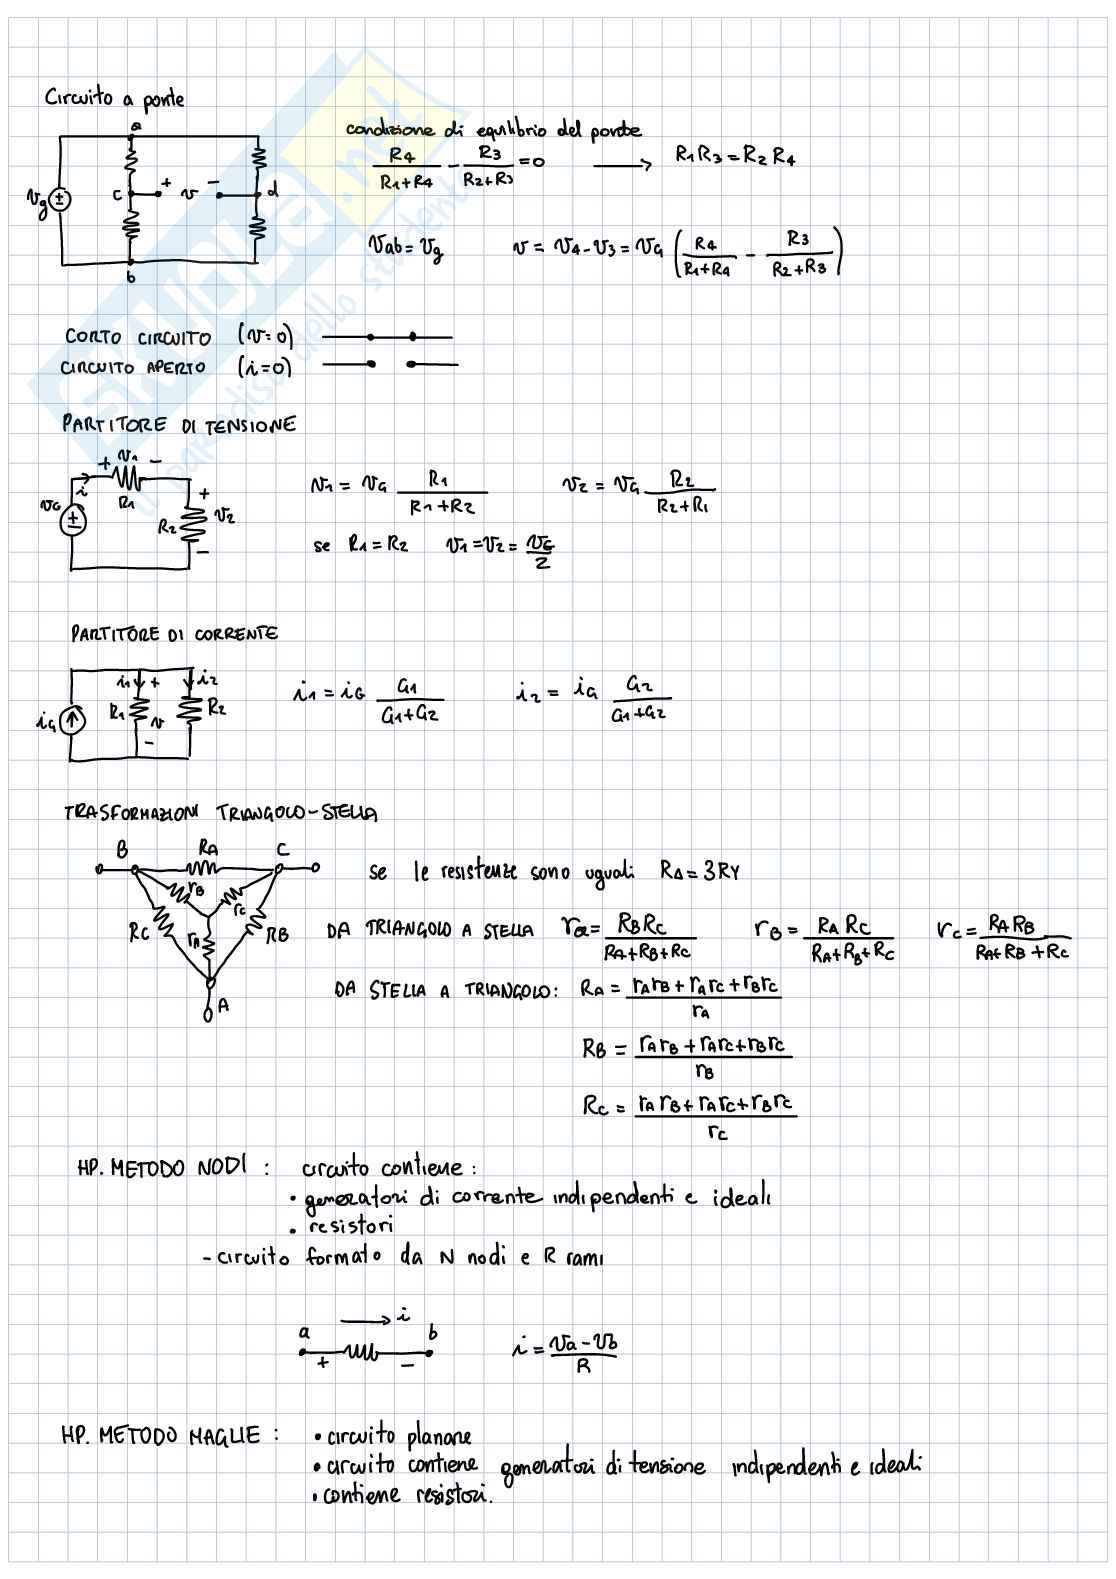 Circuito a ponte
a
c + v - d
vg
b
condizione di equilibrio del ponte
R4/(R1+R4) - R3/(R2+R3) = 0 → R1R3 = R2R4
Vab = Vg v = v4 - v3 = vG (R4/(R1+R4) - R3/(R2+R3))
CORTO CIRCUITO (v=0)
CIRCUITO APERTO (i=0)
PARTITORE DI TENSIONE
+ v1 -
i R1
vG R2 + v2 -
v1 = vG R1/(R1+R2) v2 = vG R2/(R2+R1)
se R1 = R2 v1 = v2 = vG/2
PARTITORE DI CORRENTE
i1 + i2
iG R1 v R2
-
i1 = iG G1/(G1+G2) i2 = iG G2/(G1+G2)
TRASFORMAZIONI TRIANGOLO-STELLA
B RA C
rB rC
RC rA RB
A
se le resistenze sono uguali RΔ = 3RY
DA TRIANGOLO A STELLA ra = RBRC/(RA+RB+RC) rB = RARC/(RA+RB+RC) rC = RARB/(RA+RB+RC)
DA STELLA A TRIANGOLO: RA = (rArB + rArC + rBrC)/rA
RB = (rArB + rArC + rBrC)/rB
RC = (rArB + rArC + rBrC)/rC
HP. METODO NODI : circuito contiene :
• generatori di corrente indipendenti e ideali
• resistori
- circuito formato da N nodi e R rami
→ i
a b
+ -
i = (va - vb)/R
HP. METODO MAGLIE : • circuito planare
• circuito contiene generatori di tensione indipendenti e ideali
• contiene resistori.
SKUOLA.net
il paradiso dello studente